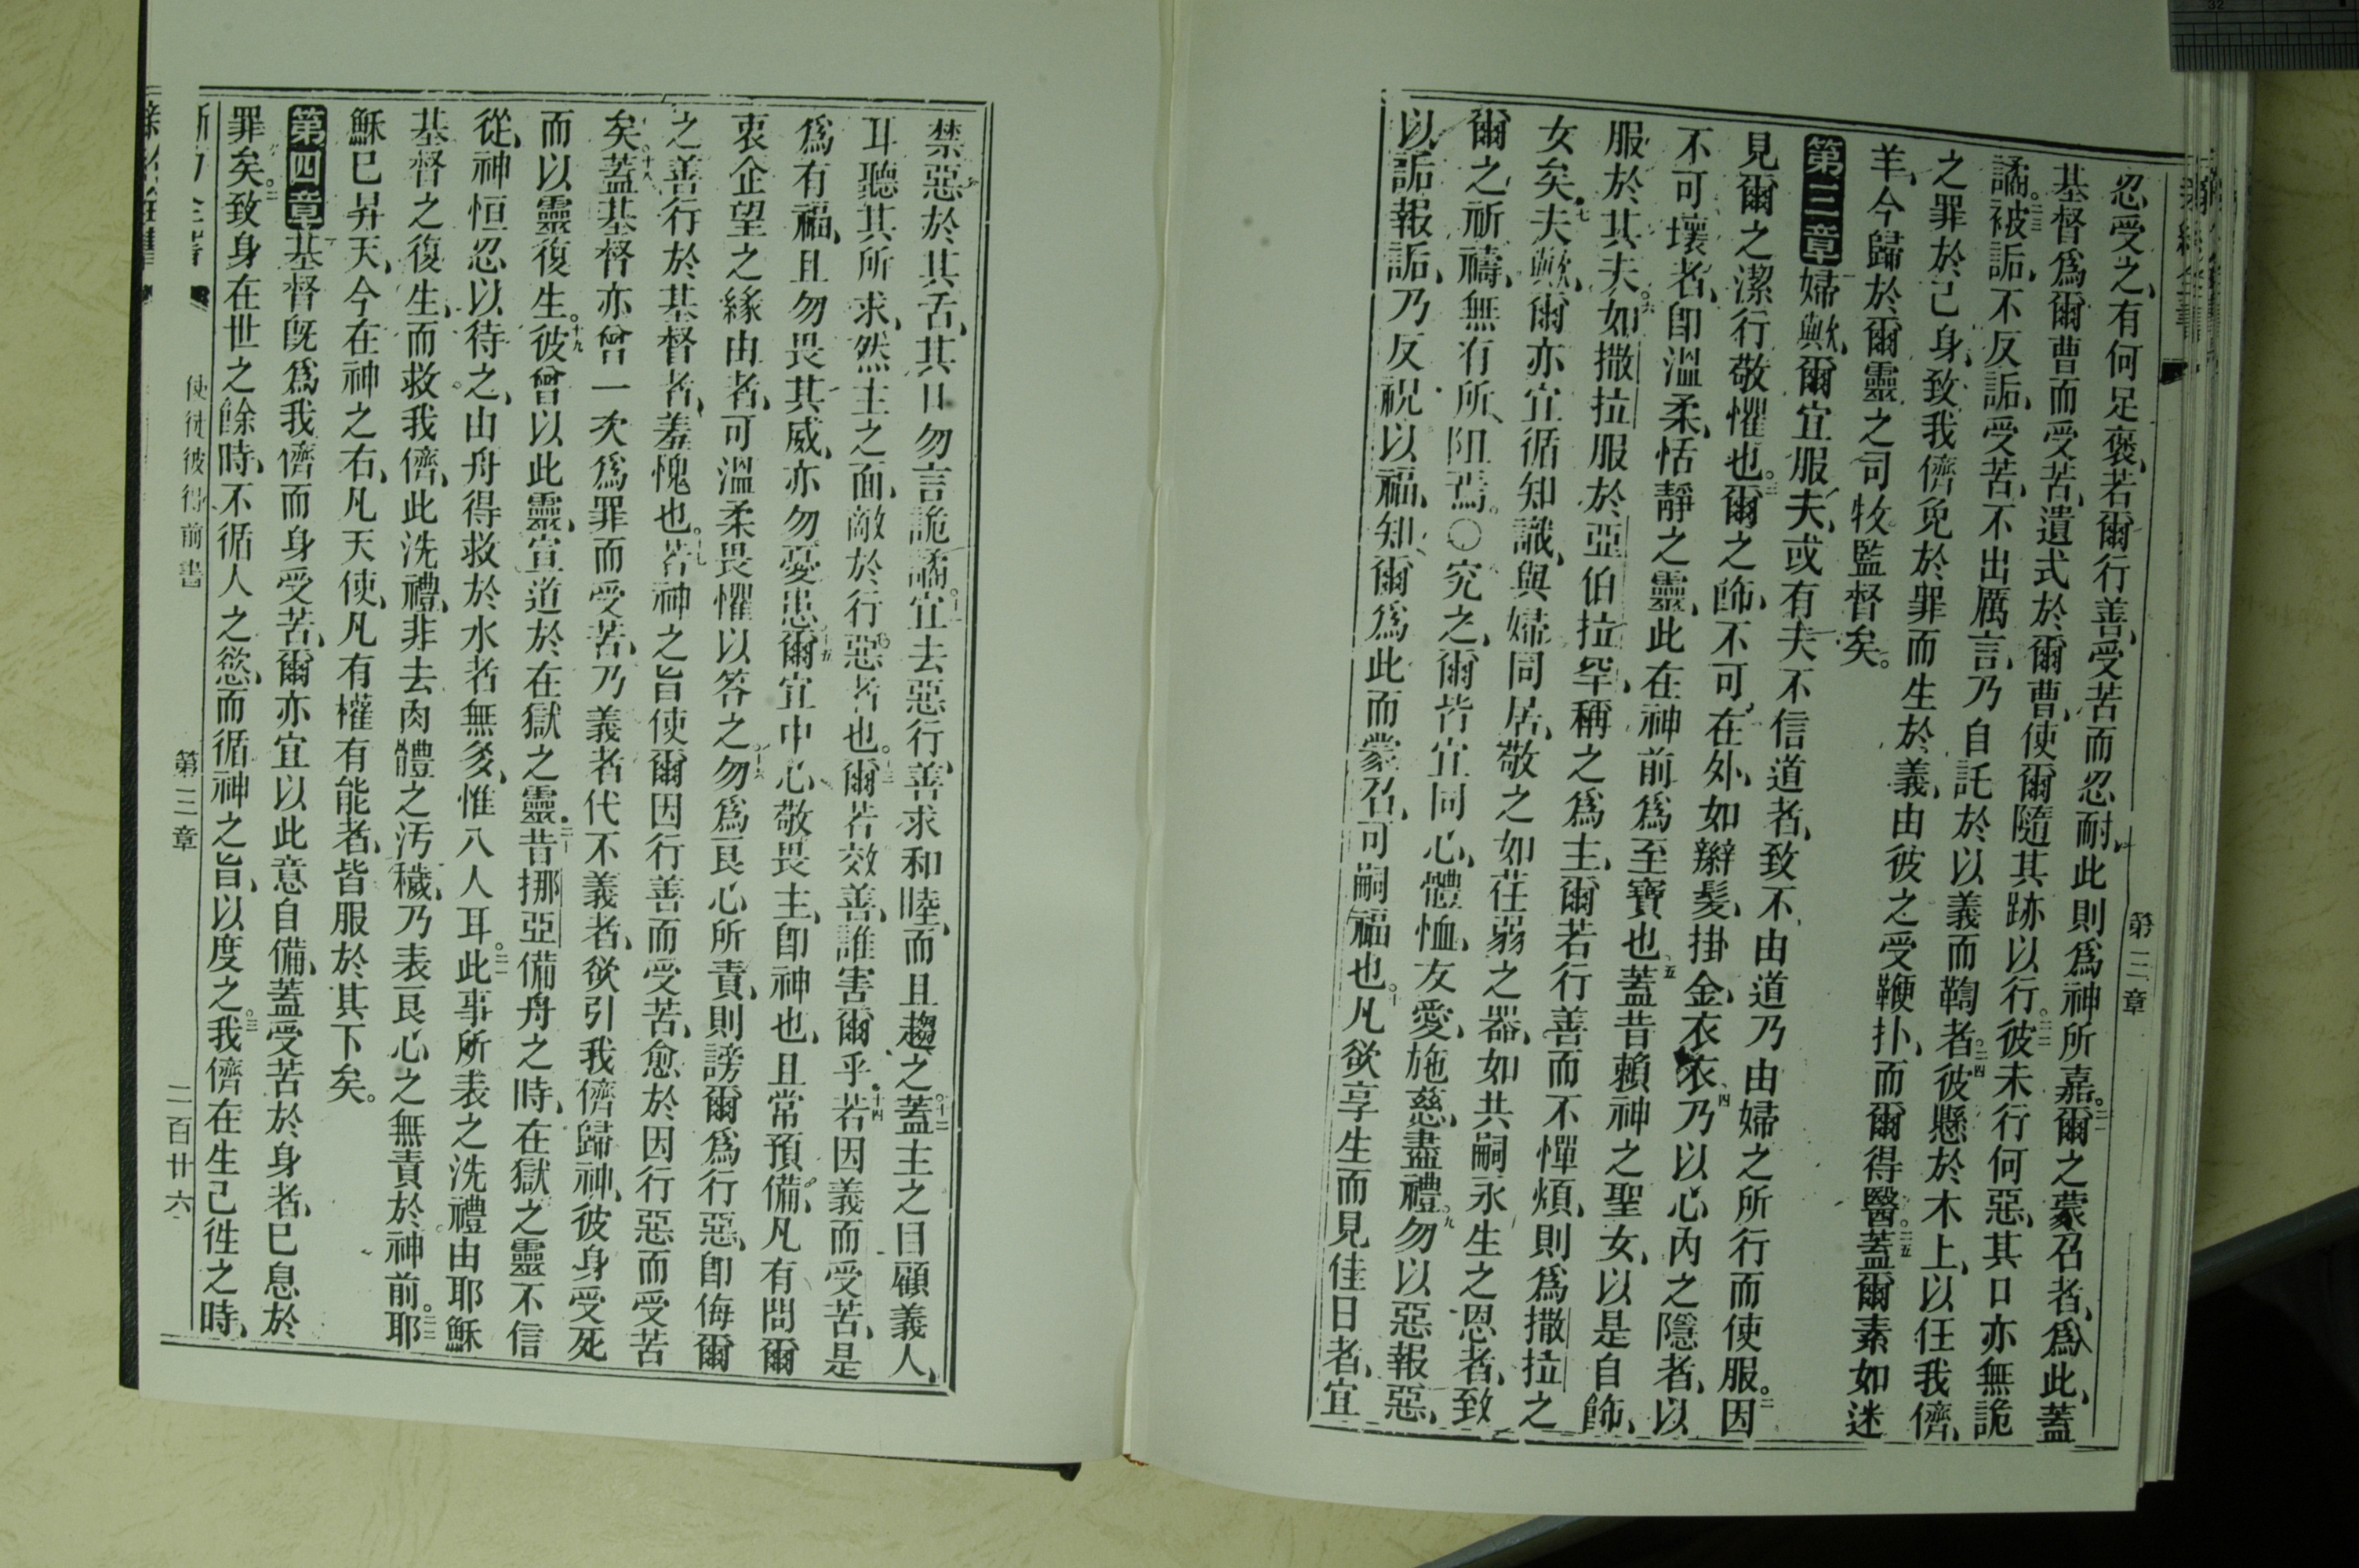 忍受之、有何足褒、若爾行善、受苦而忍耐、此則爲神所嘉。二一爾之蒙召者、爲此、蓋
基督爲爾曹而受苦、遺式於爾曹、使爾隨其跡以行。二二彼未行何惡、其口亦無詭
譎。二三被詬、不反詬、受苦、不出厲言、乃自託於以義而鞫者。二四彼懸於木上、以任我儕
之罪於己身、致我儕免於罪而生於義、由彼之受鞭扑、而爾得醫。二五蓋爾素如迷
羊、今歸於爾靈之司牧監督矣。
第三章婦歟、爾宜服夫、或有夫不信道者、致不由道乃由婦之所行而使服。二因
見爾之潔行敬懼也。三爾之飾、不可在外、如辮髮、掛金、衣衣、四乃以心內之隱者、以
不可壞者、卽溫柔、恬靜之靈、此在神前爲至寶也。五蓋昔賴神之聖女、以是自飾、
服於其夫。六如撒拉服於亞伯拉罕、稱之爲主、爾若行善而不憚煩、則爲撒拉之
女矣。七夫歟、爾亦宜循知識、與婦同居、敬之如荏弱之器、如共嗣永生之恩者、致
爾之祈禱、無有所阻焉。〇究之、爾皆宜同心、體恤、友愛、施慈、盡禮。九勿以惡報惡、
以詬報詬、乃反祝以福、知爾爲此而蒙召、可嗣福也。十凡欲享生而見佳日者、宜
第三章
禁惡於其舌、其口勿言詭譎。十一宜去惡行、善求和睦、而且趨之。十二蓋主之目顧義人、
耳聽其所求、然主之面、敵於行惡者也。十三爾若效善、誰害爾乎。十四若因義而受苦、是
爲有福、且勿畏其威、亦勿憂患。十五爾宜中心敬畏主、卽神也、且常預備、凡有問爾
衷企望之緣由者、可溫柔畏懼以答之。十六勿爲良心所責、則謗爾爲行惡、卽侮爾
之善行於基督者、羞愧也。十七若神之旨使爾因行善而受苦、愈於因行惡而受苦
矣。十八蓋基督亦曾一次爲罪而受苦、乃義者代不義者、欲引我儕歸神、彼身受死
而以靈復生。十九彼曾以此靈、宣道於在獄之靈。二十昔挪亞備舟之時、在獄之靈不信
從、神恒忍以待之、由舟得救於水者無多、惟八人耳。二一此事所表之洗禮、由耶穌
基督之復生、而救我儕、此洗禮、非去肉體之汚穢、乃表良心之無責於神前。二二耶
穌已昇天、今在神之右、凡天使、凡有權有能者、皆服於其下矣。
第四章基督旣爲我儕而身受苦、爾亦宜以此意自備、蓋受苦於身者、已息於
罪矣。二致身在世之餘時、不循人之慾、而循神之旨、以度之。三我儕在生已徃之時、
使徒彼得前書
第三章
二百廿六